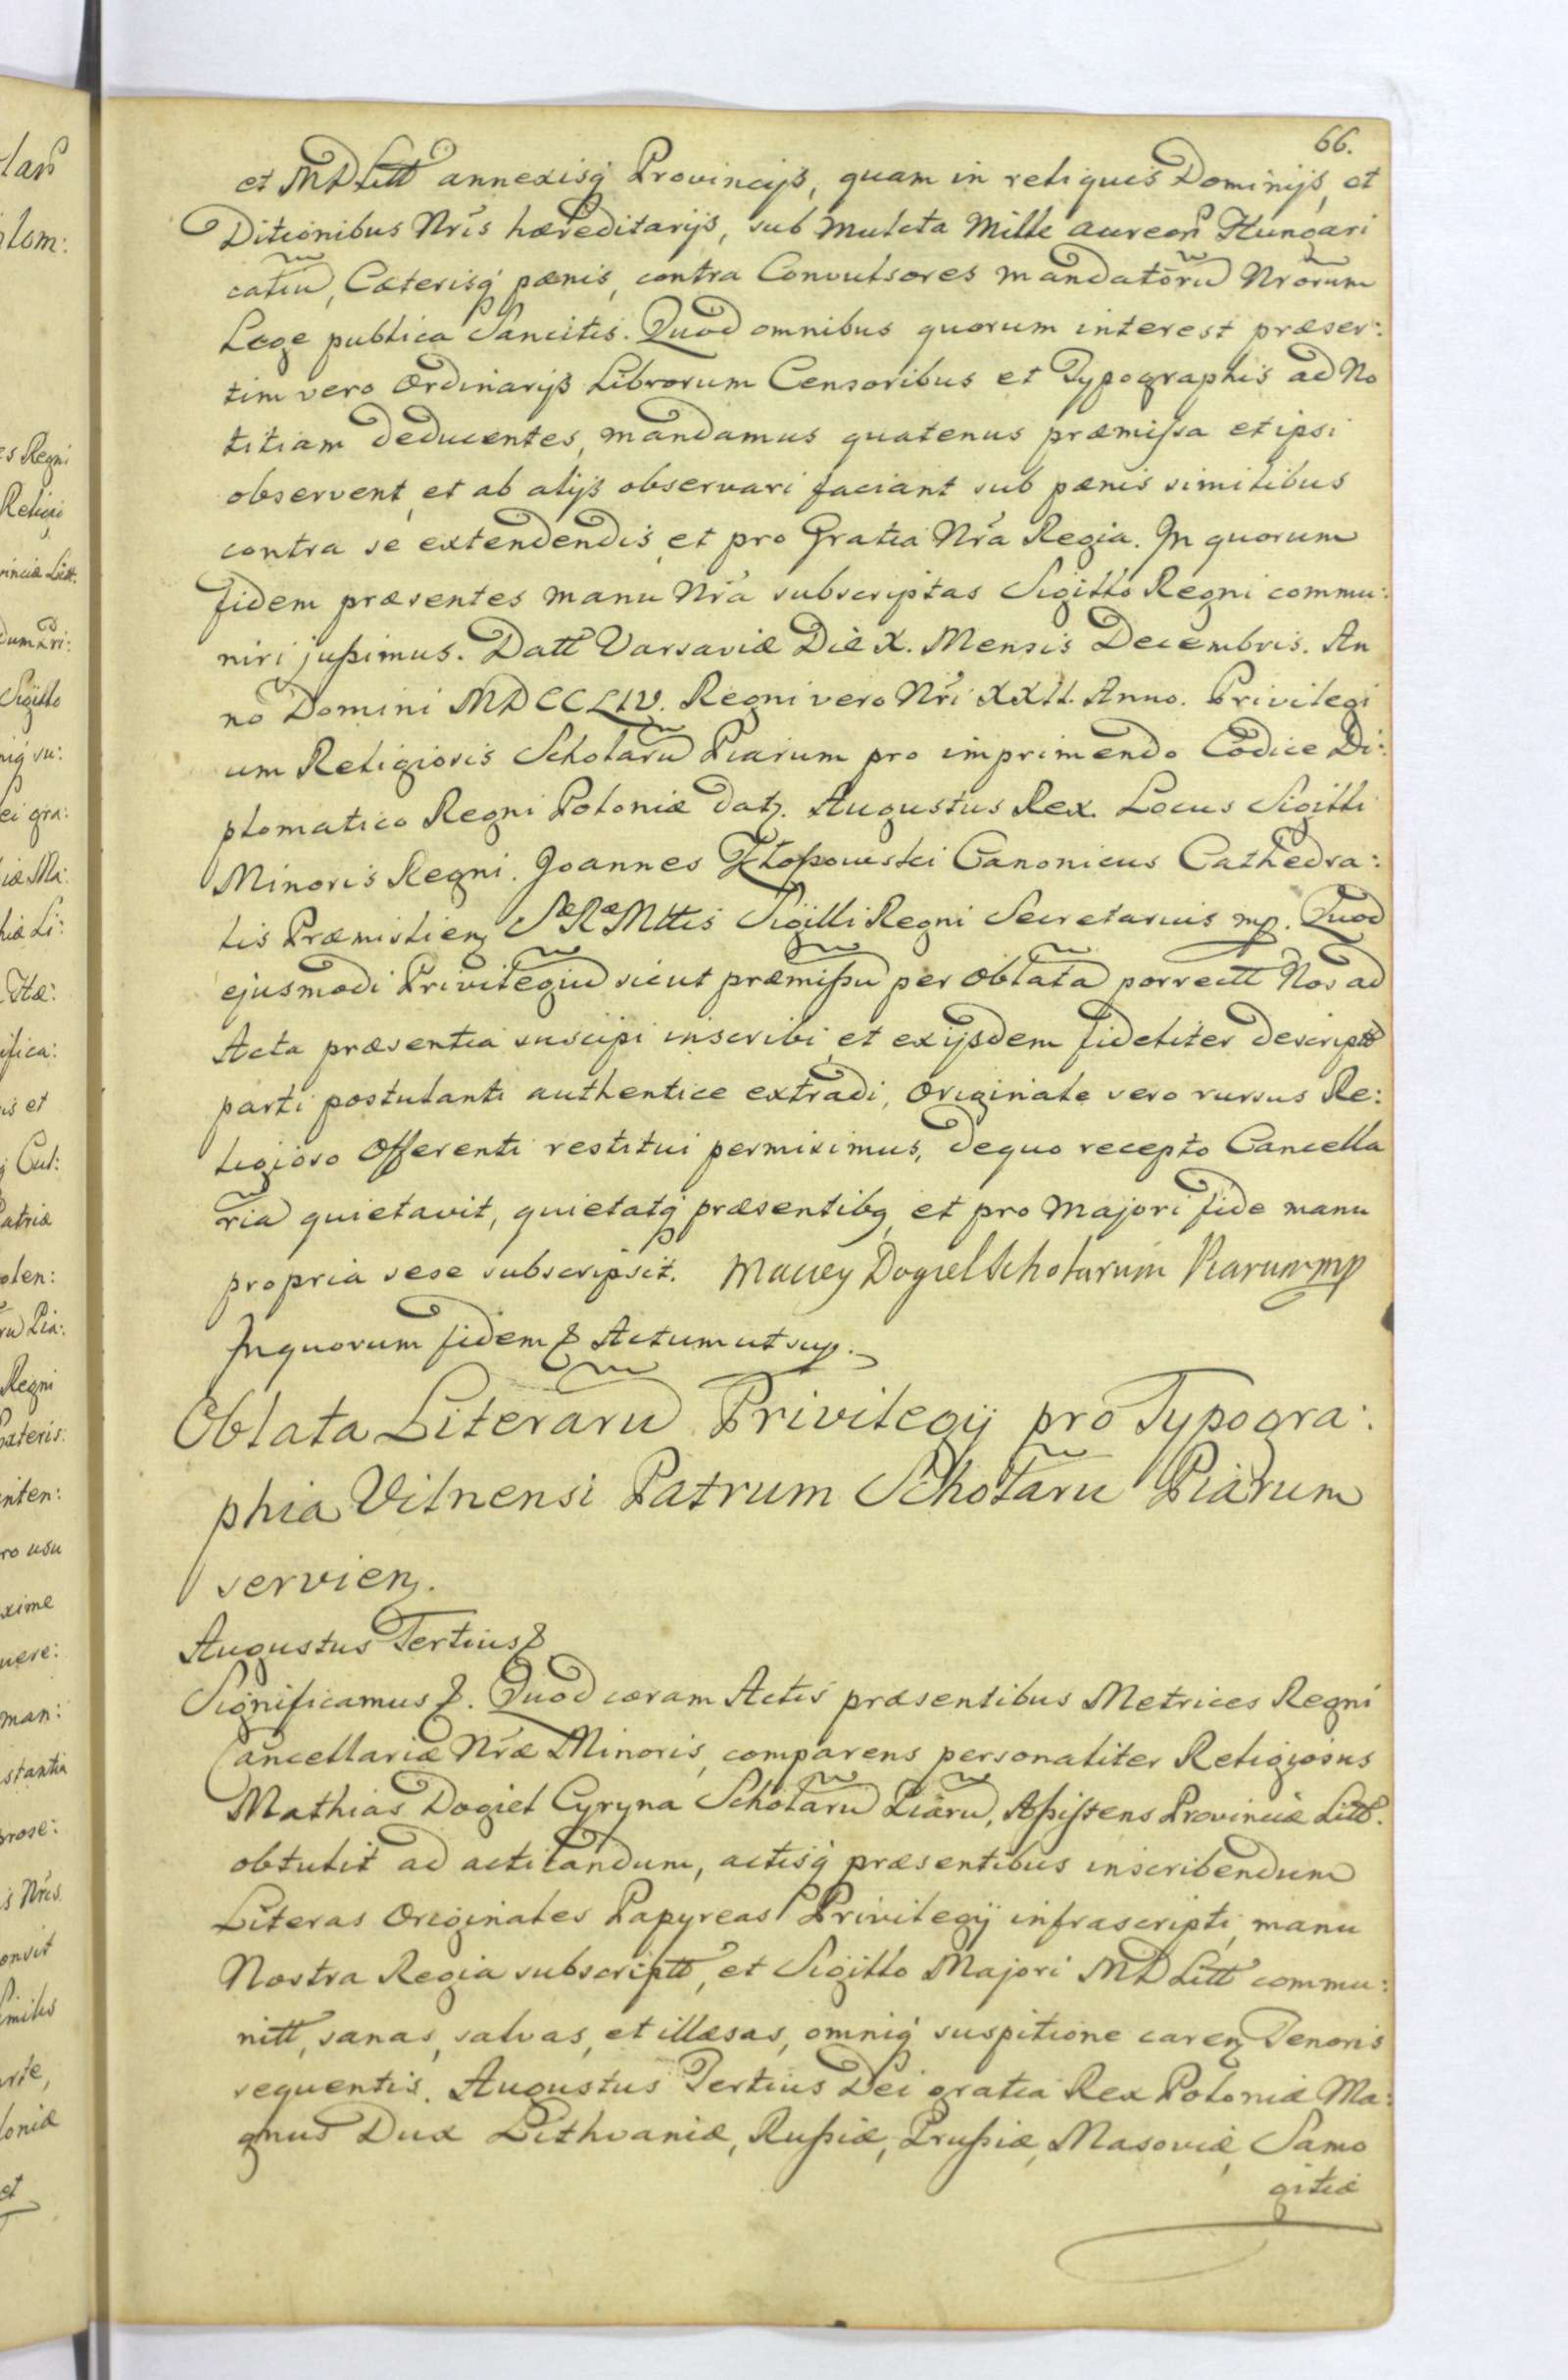 66.
et MD Litt annexisq Provincijs, quam in reliquis Dominijs, et
Ditionibus Nris hæreditarijs, sub mulcta Mille aureor Hungari
catiũ, Cæterisq pænis, contra Convulsores mandatorũ Nrorum
Lege publica Sancitis. Quod omnibus quorum interest præser:
tim vero Ordinarijs Librorum Censoribus et Typographis ad No
titiam deducentes, mandamus quatenus præmissa et ipsi
observent, et ab alijs observari faciant sub pænis similibus
contra se extendendis, et pro Gratia Nra Regia. In quorum
fidem præsentes manu Nra subscriptas Sigillo Regni commu:
niri jussimus. Datt Varsaviæ Die X. Mensis Decembris. An
no Domini MDCCLIV. Regni vero Nri XXII. Anno. Privilegi
um Religiosis Scholarũ Piarum pro imprimendo Codice Di:
plomatico Regni Poloniæ datz. Augustus Rex. Locus Sigilli
Minoris Regni. Joannes Kłossowski Canonicus Cathedra:
lis Præmislienz SæRæMttis Sigilli Regni Secretarius mp. Quod
ejusmodi Privilegiũ sicut præmissũ per Oblatã porrectt Nos ad
Acta præsentia suscipi inscribi, et ex ijsdem fideliter descriptt
parti postulanti authentice extradi, Originale vero rursus Re:
ligioso Offerenti restitui permisimus, de quo recepto Cancella
riã quietavit, quietatq præsentibq, et pro majori fide manu
propria sese subscripsit. Maciey Dogiel Scholarum Piarum mp
In quorum fidem & Actum ut sup.
Oblata Literarũ Privilegij pro Typogra:
phia Vilnensi Patrum Scholarũ Piarum
servienz.
Augustus Tertius &
Significamus &. Quod coram Actis præsentibus Metrices Regni
Cancellariæ Nræ Minoris, comparens personaliter Religiosus
Mathias Dogiel Cyryna Scholarũ Piarũ, Assistens Provinciæ Litt.
obtulit ad acticandum, actisq præsentibus inscribendum
Literas Originales Papyreas Privilegij infrascripti, manu
Nostra Regia subscriptt, et Sigillo Majori MD Litt commu:
nitt, sanas, salvas, et illæsas, omniq suspitione carenz Tenoris
sequentis. Augustus Tertius Dei gratia Rex Poloniæ Ma:
gnus Dux Lithvaniæ, Russiæ, Prussiæ, Masoviæ, Samo
gitiæ